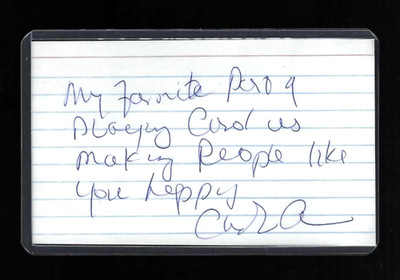 My Favorite Part of
Playing Carol is
Making People like
You happy